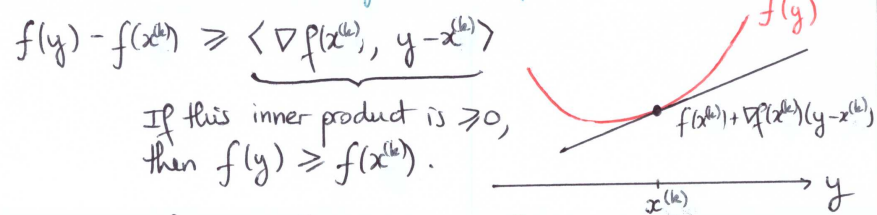 f(y) - f(x^(k)) ⩾ ⟨∇f(x^(k)), y - x^(k)⟩
If this inner product is ⩾0,
then f(y) ⩾ f(x^(k)).
f(y)
f(x^(k)) + ∇f(x^(k))(y - x^(k))
x^(k)
y